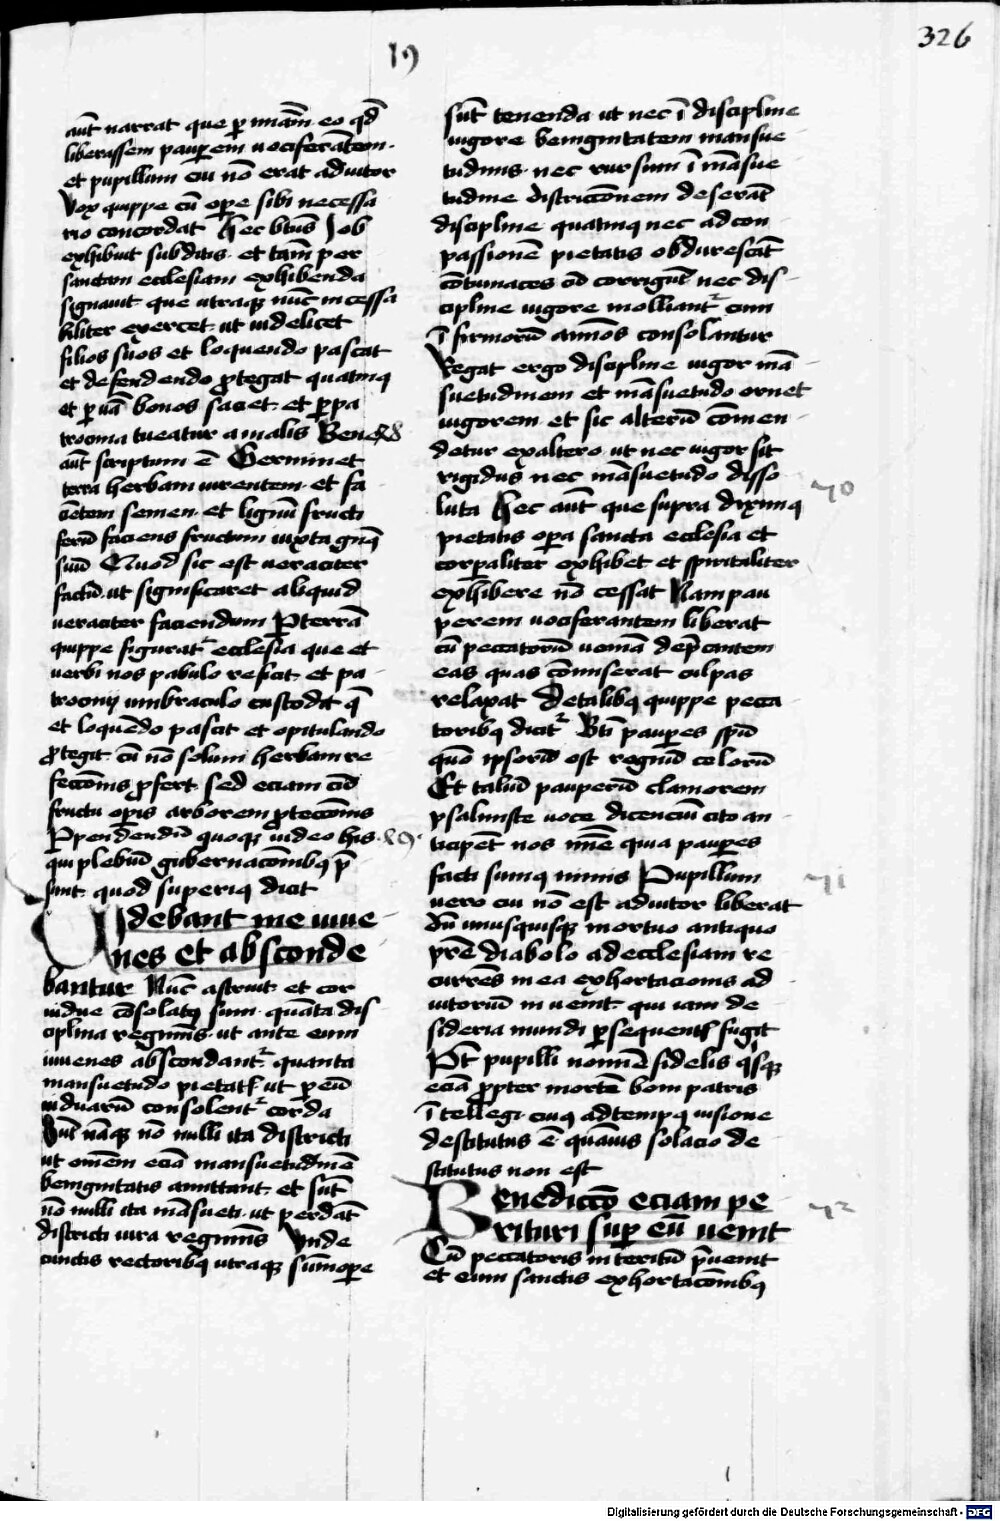 326
19
aut̄ narrat que p̱ miām. eo qd̄
liberassem paup̱em vociferātem.
et pupillum cui nō erat adiutor
Vox quippe cū ope sibi necessa
rio concordat Hec bt̄us Job
exhibuit subditis. et tam̄ per
sanctam ecclesiam exhibenda
signauit que utraqꝫ nūc incessa
biliter exercet. ut videlicet
filios suos et loquendo pascat
et defendendo ꝓtegat quatinꝰ
et p̱ uā bonos saciet. et p̱ pa
trocinia tueatur a malis Bene
aut̄ scriptum ē Germinet
terra herbam virentem. et fa
ciētem semen. et lignū fructi
ferū faciens fructum iuxta genꝰ
suū Quod sic est veraciter
factū. ut significaret aliquid
veraciter faciendum P̱ terrā
quippe figurat̉ ecclesia que et
verbi nos pabulo reficit. et pa
trocinij umbraculo custodit q̄
et loquēdo pascit et opitulando
ꝓtegit. cū nō solum herbam re
feccōnis ꝓfert. sed eciam cū
fructu op̱is arborem ꝓteccōnis
P̱pendendū quoqꝫ video his. 69.
qui plebiū gubernacōnibꝫ p̄
sunt. quod superiꝰ dicit
Videbant me iuue
nes et absconde
bantur Nūc astruit. et cor
vidue cōsolatꝰ sum. quāta dis
ciplina regiminis. ut ante eum
iuuenes abscondant̉ quanta
mansuetudo pietatis ut p̱ eū
viduarū consolent̉ corda
Sunt nāqꝫ nō nulli ita districti
ut omēm eciā mansuetudinē
benignitatis amittant. et sūt
nō nulli ita māsueti. ut perdāt
districti iura regiminis Vnde
cunctis rectoribꝫ utraqꝫ sūmope
sūt tenenda. ut nec ī discipline
vigore benignitatem mansue
tudinis. nec rursum ī māsue
tudine districcōnem deserāt
discipline. quatinꝰ nec ad con
passionē pietatis obdurescāt
cōtumaces cū corrigūt nec dis
cipline vigore molliant̉ cum
īfirmorū animos consolantur
Regat ergo discipline vigor mā
suetudinem et māsuetudo ornet
vigorem et sic alterū cōmen
detur ex altero. ut nec vigor sit
rigidus nec māsuetudo disso
luta Hec aut̄ que supra diximꝰ 70
pietatis op̱a sancta ecclesia et
corp̱aliter exhibet et spiritaliter
exhibere nō cessat Nam pau
perem vociferantem liberat
cū peccatorū veniā dep̄cantem
eas quas cōmiserat culpas
relaxat De talibꝫ quippe pecca
toribꝫ dicit̉ Bt̄i paup̱es sp̄u
quō ipsorū est regnū celorū
Et taliū pauperū clamorem
psalmiste voce dicenciū cito an
ticipēt nos mīe quia paup̱es
facti sumꝰ nimis Pupillum 71
vero cui nō est adiutor liberat
dū unusquisqꝫ mortuo antiquo
pr̄e diabolo ad ecclesiam re
currēs in ea exhortacionis ad
iutoriū inuenit. qui iam de
sideria mundi p̱sequentis fugit
Pōt pupilli nomīe fidelis qisqꝫ
eciā ꝓpter mortē boni patris
ītellegi. cuiꝰ ad tempꝰ visione
destitutus ē. quāuis solacio de
stitutus non est
Benediccō eciam pe 72
rituri sup̱ eū venit
Cū peccatoris interitū p̄uenit
et eum sanctis exhortacōnibꝫ
Digitalisierung gefördert durch die Deutsche Forschungsgemeinschaft - DFG